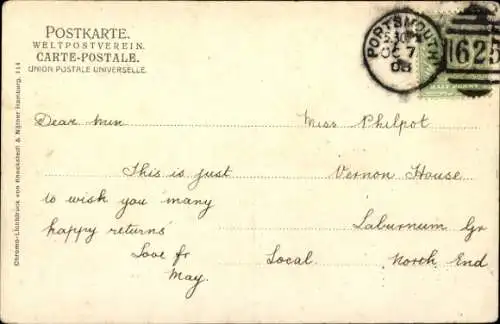 POSTKARTE.
WELTPOSTVEREIN.
CARTE-POSTALE.
UNION POSTALE UNIVERSELLE.
PORTSMOUTH
OC 7
625
HALF PENNY
Dear
This is just
to wish you many
happy returns
Love fr
May.
Miss Philpot
Vernon House
Laburnum Gr
Local. North End
Chromo-Lichtdruck von Knackstedt & Näther Hamburg. 114